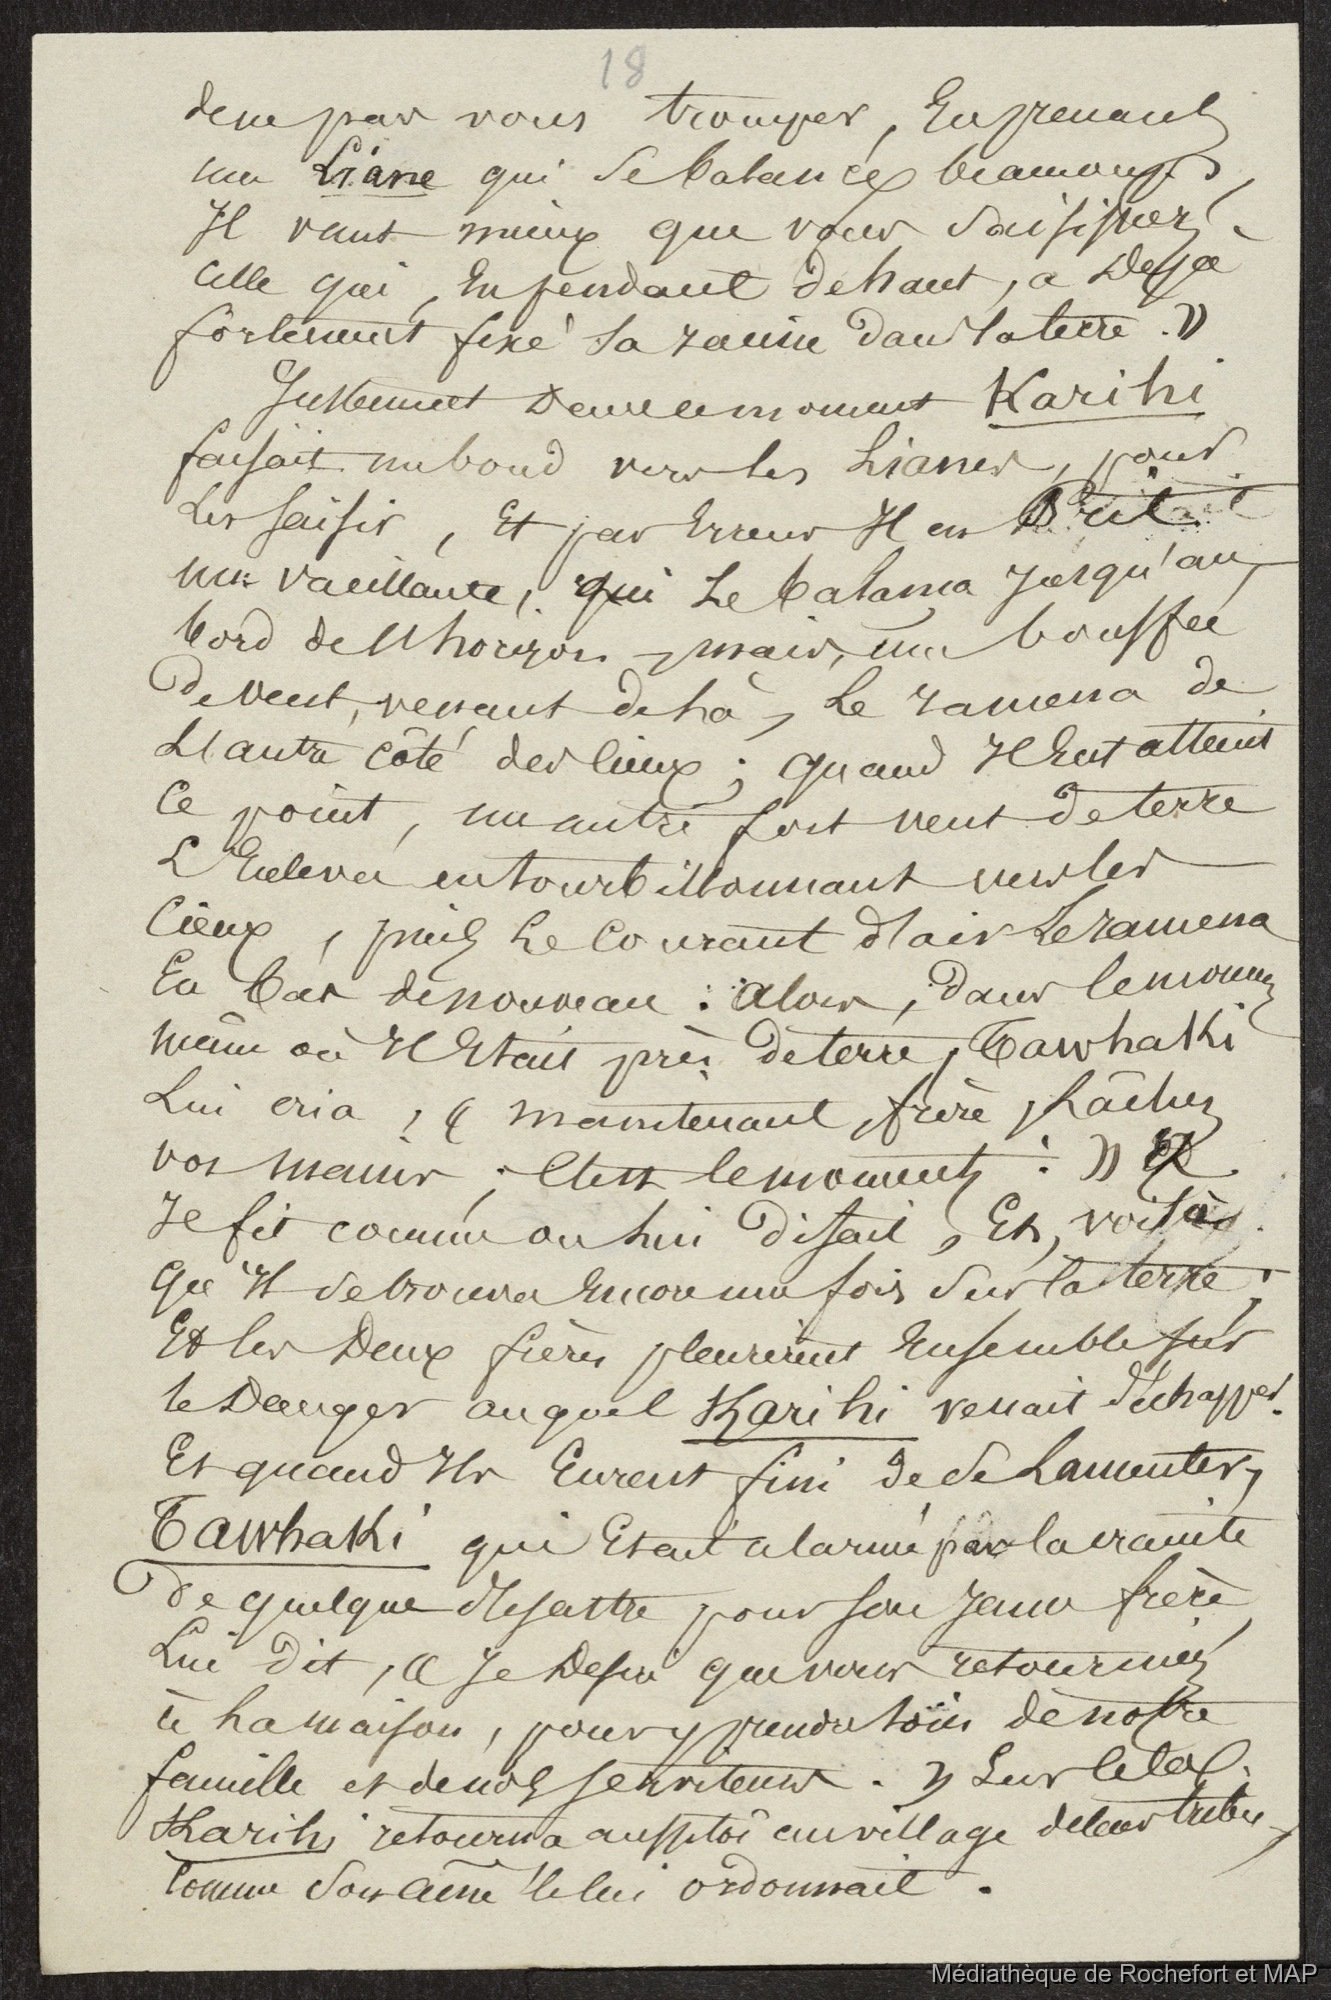 18
de ne pas vous tromper, En prenant
une Liane qui se balance beaucoup,
Il vaut mieux que vous saisissiez
celle qui, En pendant de haut, a Deja
fortement fixé sa racine dans la terre. »
Justement Dans ce moment Karihi
faisait un bond vers les Lianes, pour
Les saisir, Et par Erreur Il en Prit
une vacillante, qui Le balança Jusqu'au
bord de l'horizon, mais, une bouffée
De vent, venant de là, Le ramena de
L'autre côté des lieux ; quand Il Eut atteint
ce point, un autre fort vent De terre
L'Enleva en tourbillonnant vers les
Cieux, puis Le Courant d'air Le ramena
En bas de nouveau : alors, Dans le moment
même où Il Etait près De terre, Tawhaki
Lui cria, « maintenant, frère, Lâchez
vos mains ; C'est le moment : » Et
Il fit comme on Lui Disait, Et, voilà
Qu'Il se trouva Encore une fois Sur la terre ;
Et les Deux frères pleurèrent Ensemble sur
le Danger auquel Karihi venait d'échapper.
Et quand Ils Eurent fini de se Lamenter,
Tawhaki qui Etait alarmé par la crainte
De quelque désastre pour son Jeune frère,
Lui Dit, « Je Désire que vous retourniez
à La maison, pour y prendre soin de notre
famille et de nos serviteurs. » Sur cela,
Karihi retourna aussitôt au village de leur tribu,
Comme Son aîné le lui ordonnait.
Médiathèque de Rochefort et MAP